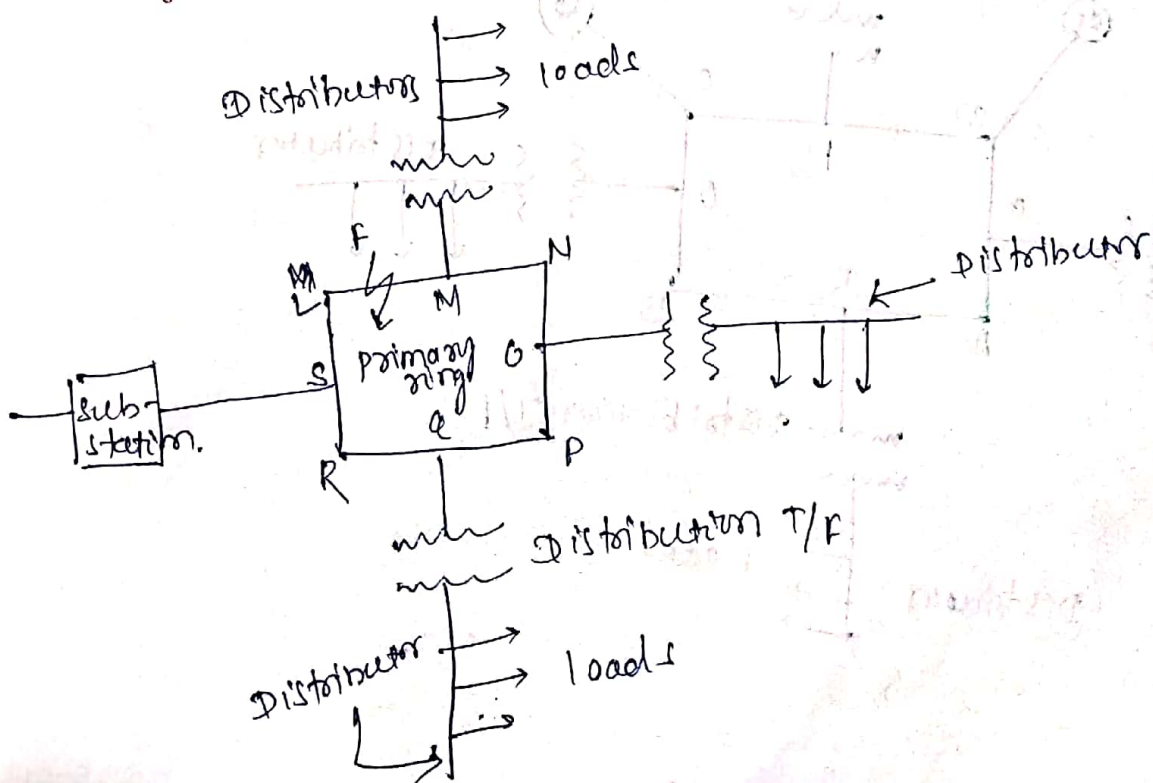 Distributors
loads
F
N
L
M
Distributor
S
primary
ring
O
Q
sub-
station.
R
P
Distribution T/F
Distributor
loads